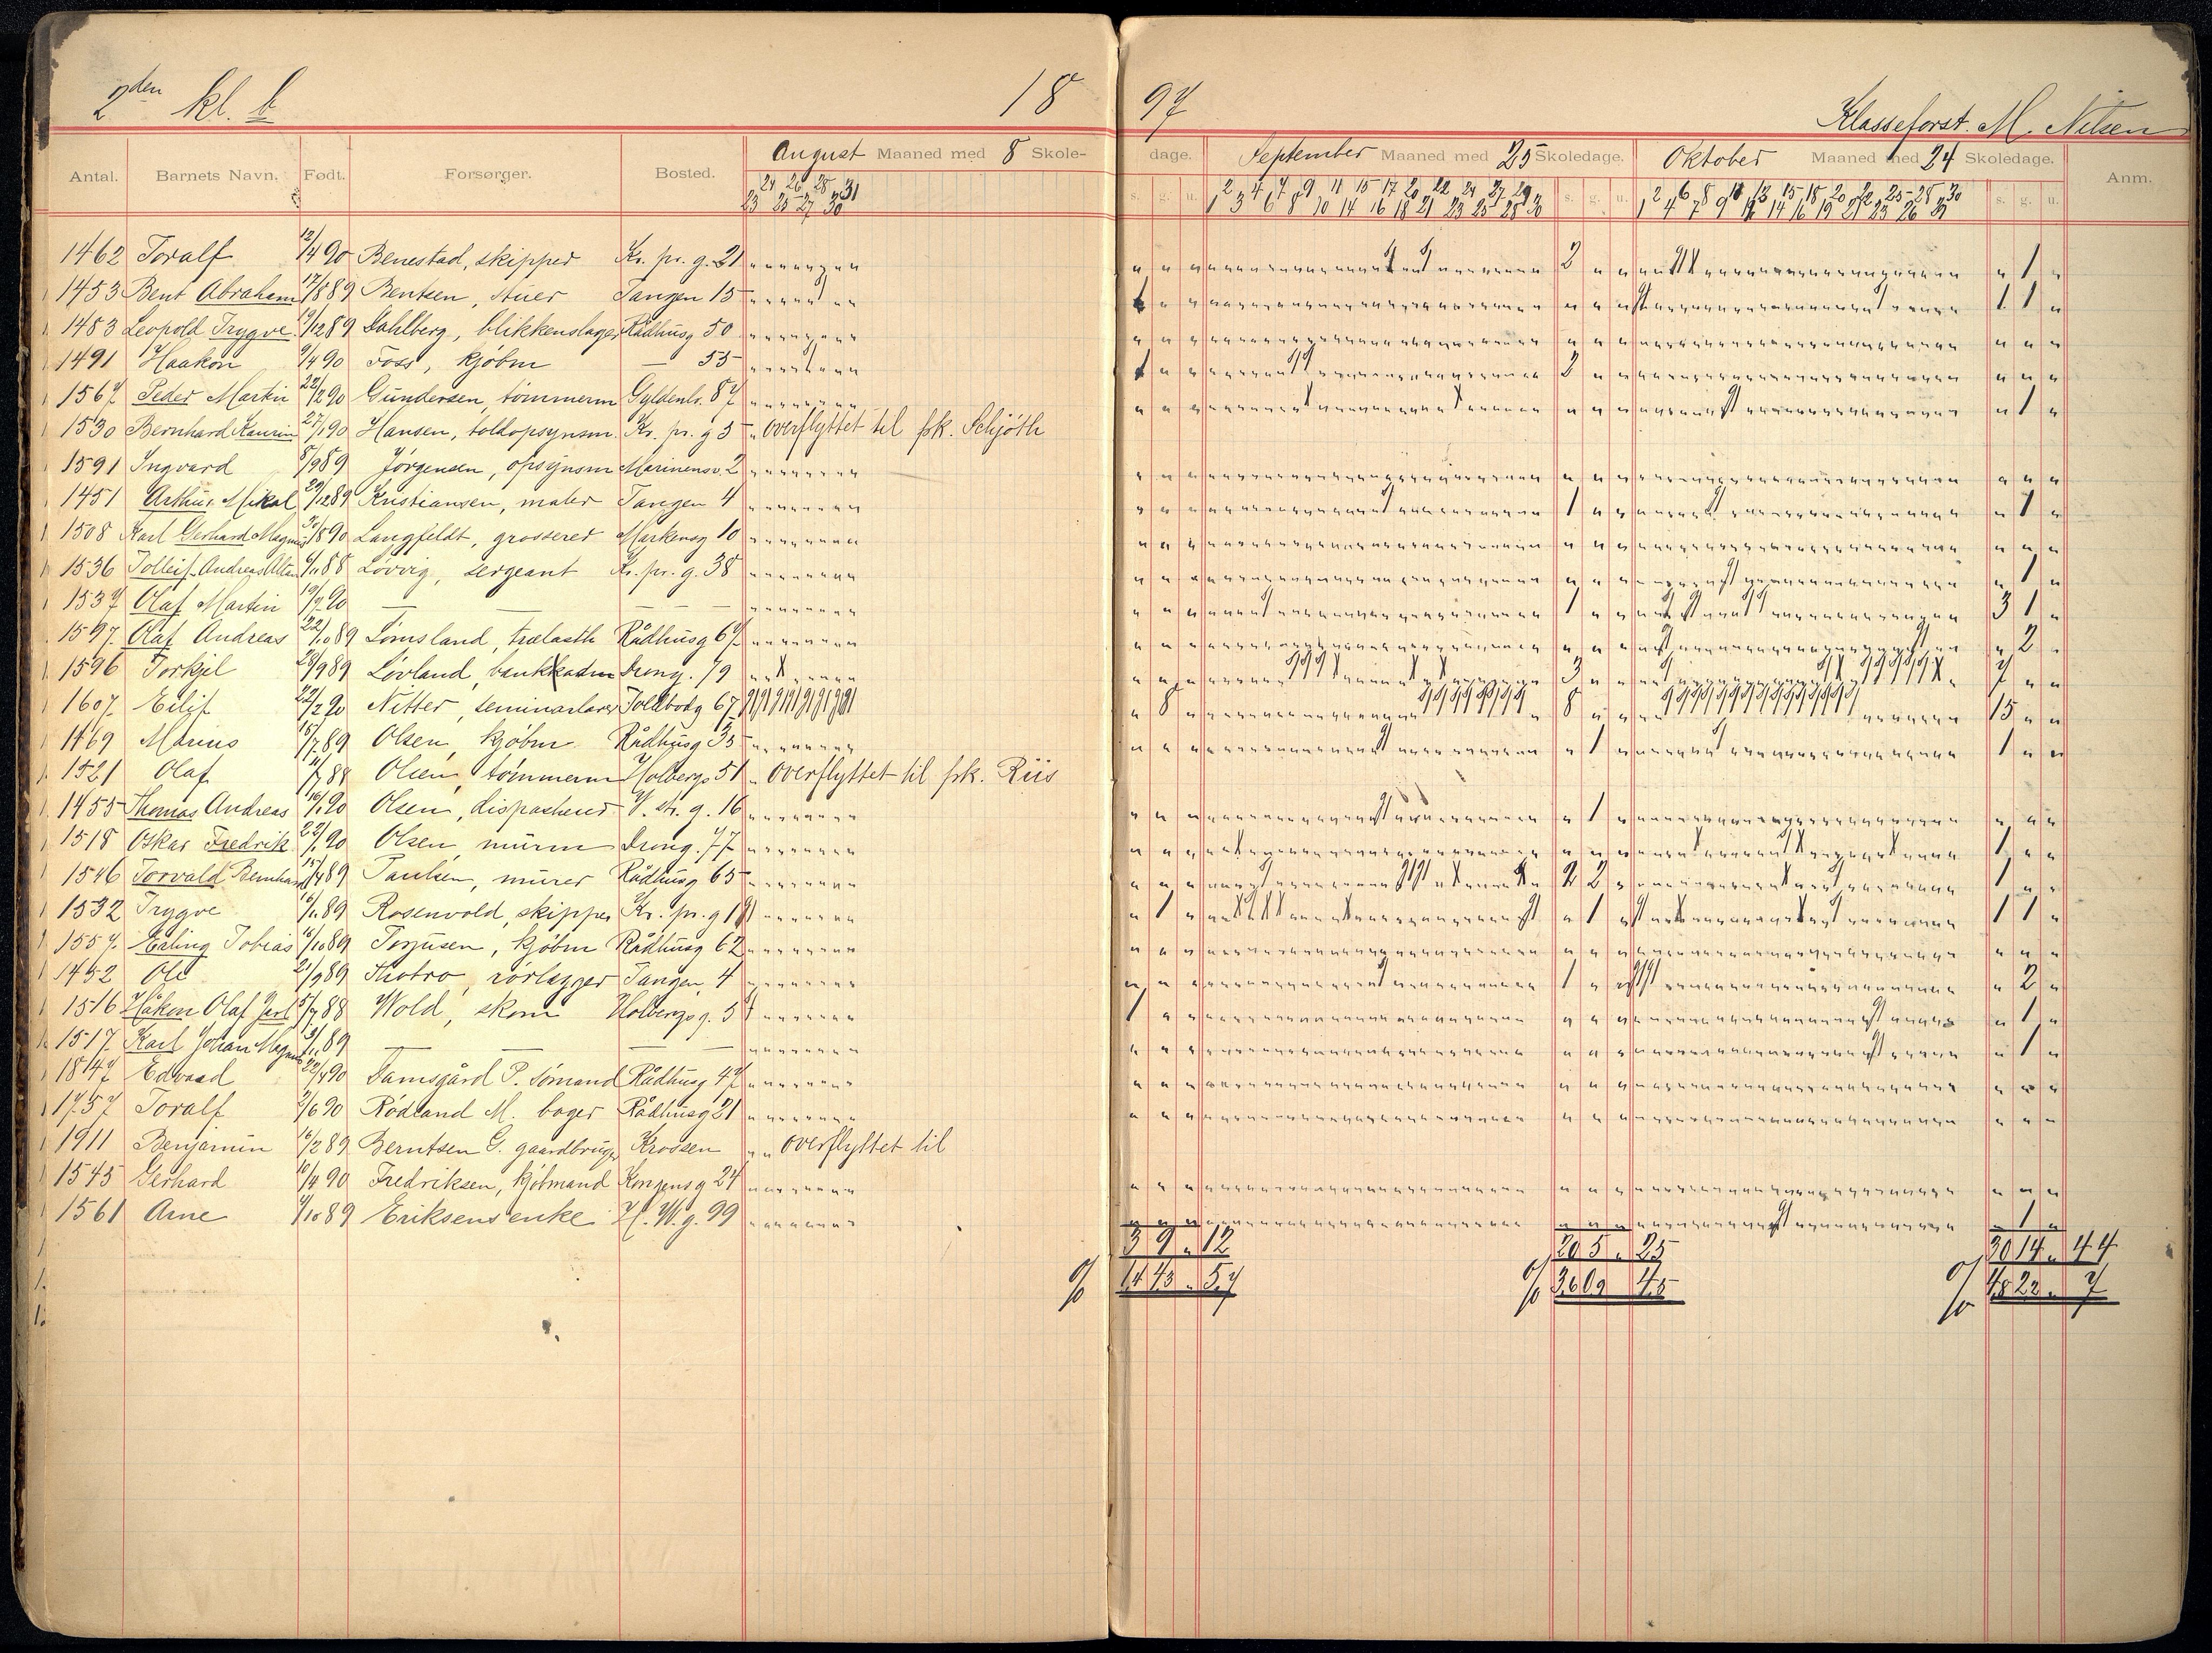 2den kl. b 18 97 Klasseforst. M. Nilsen
Antal. Barnets Navn. Født. Forsørger. Bosted. August Maaned med 8 Skole- dage. September Maaned med 25 Skoledage. Oktober Maaned med 24 Skoledage. Anm.
s. g. u. s. g. u. s. g. u.
24 26 28 31
23 25 27 30
1462 Toralf 12/4 90 Benestad, skipper Kr. pr. g. 21 2 1
1453 Bent Abraham 17/8 89 Bentsen, stuer Tangen 15 1 1 1
1483 Leopold Trygve 19/12 89 Dahlberg, blikkenslager Rådhusg 50
1491 Haakon 9/4 90 Foss, kjøbm — 55 1 2
1567 Peder Martin 22/2 90 Gundersen, tømmerm Gyldenlv. 87 1
1530 Bernhard 27/1 90 Hansen, toldopsynsm. Kr. pr. g 5 overflyttet til frk. Schjøth
1591 Ingvard 8/9 89 Jørgensen, opsynsm Marinensv. 2
1451 Arthur Mikal 29/12 89 Kristiansen, maler Tangen 4 1 1
1508 Karl Gerhard Magnus /8 90 Langfeldt, grosserer Markensg 10
1536 Tolleif Andreas 6/11 88 Løvvig, sergeant Kr. pr. g. 38 1
1537 Olaf Martin 19/7 90 — — — — — 1 3 1
1597 Olaf Andreas 22/10 89 Lømsland, trælasth Rådhusg 67 2
1596 Torkjel 28/9 89 Løvland, bankkadm Drong. 79 3 7
1607 Eilif 22/2 90 Nitter, seminarlærer Toldbodg 67 8 8 15
1469 Marius 15/7 89 Olsen, kjøbm Rådhusg 35 1 1
1521 Olaf 4/7 88 Olsen, tømmerm Holbergs 51 overflyttet til frk. Riis
1455 Thomas Andreas 16/1 90 Olsen, dispacheur V. str. g. 16 1
1518 Oskar Fredrik 22/1 90 Olsen, murm Drong. 77 1
1546 Torvald Bernhard 15/4 89 Paulsen, murer Rådhusg 65 2 2 1
1532 Trygve 16/11 89 Rosenvold, skipper Kr. pr. g 1 1 1 1 1
1557 Erling Tobias 16/10 89 Torjusen, kjøbm Rådhusg 62
1452 Ole 21/9 89 Thobro, rørlægger Tangen 4 1 2
1516 Håkon Olaf Jarl 5/7 88 Wold, skom Holbergs g. 5 1 1
1517 Karl Johan Magnus 3/11 89 — — — — 1
1847 Edvard 22/4 90 Damsgård P. sømand Rådhusg 47
1757 Toralf 2/6 90 Rødland M. bager Rådhusg 21
1911 Benjamin 16/2 89 Berntsen G. gaardbruger Krossen overflyttet til
1545 Gerhard 10/4 90 Fredriksen, kjøbmand Kongensg 24
1561 Arne 4/10 89 Eriksens enke H. W. g. 99 1
3 9 " 12 20 5 " 25 30 14 " 44
% 1,4 4,3 " 5,7 % 3,6 0,9 4,5 % 4,8 2,2 " 7